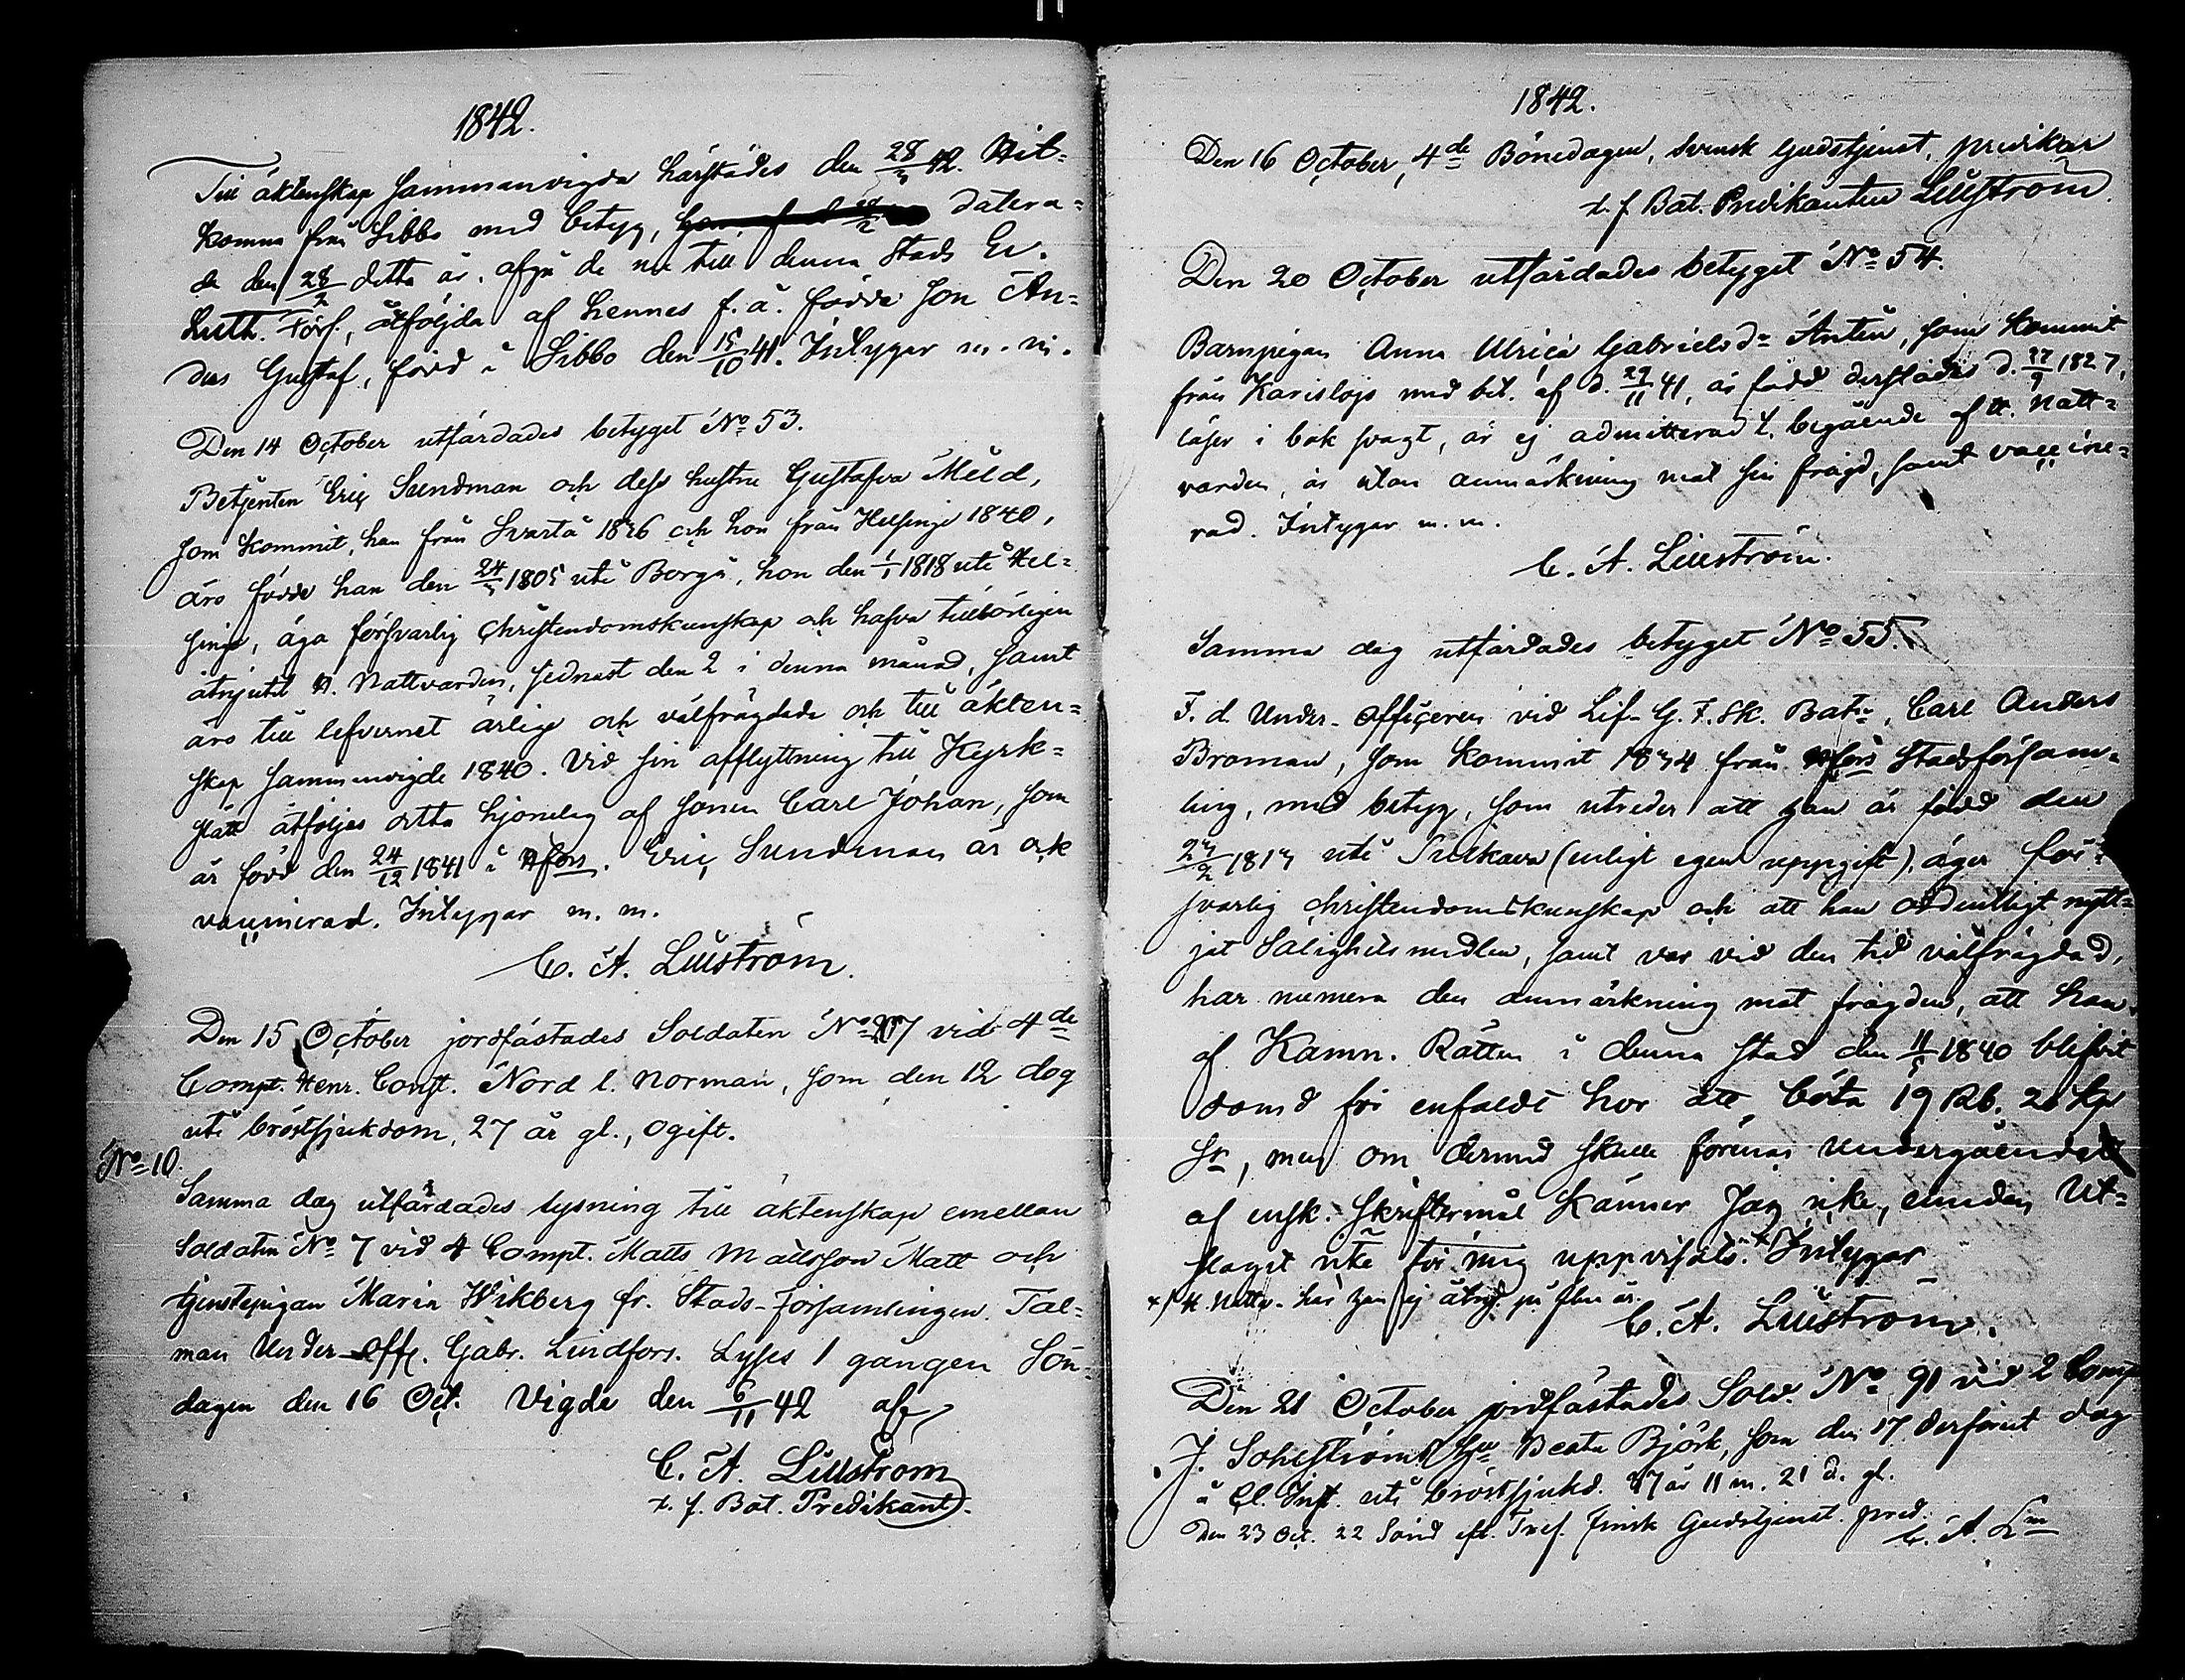 1842.
Till äktenskap sammanvigda härstädes den 28/3 42. Hit-
komna från Sibbo med betyg, datera-
de den 28/2 detta år, afgå de nu till denna Stads Ev.
Luth. Förs., åtföljda af hennes f. ä. födde son An-
ders Gustaf, född i Sibbo den 15/10 41. Intygar m. m.
Den 14 October utfärdades betyget No 53.
Betjenten Eric Sundman och dess hustru Gustafva Meld,
som kommit, han från Svartå 1836 och hon från Helsinge 1840,
äro födde han den 24/3 1805 uti Borgå, hon den 1/1 1818 uti Hel-
singe, äga försvarlig Christendomskunskap och hafva tillbörligen
åtnjutit H. Nattvarden, sednast den 2 i denna månad, samt
äro till lefvernet ärlige och välfrägdade och till äkten-
skap sammanvigde 1840. Vid sin afflyttning till Kyrk-
slätt åtföljes detta hjonelag af sonen Carl Johan, som
är född den 24/12 1841 i Hfors. Eric Sundman är ock
vaccinerad. Intygar m. m.
C. A. Lillström.
Den 15 October jordfästades Soldaten No 7 vid 4de
Comp. Henr. Const. Nord l. Norman, som den 12 dog
uti bröstsjukdom, 27 år gl., ogift.
No 10.
Samma dag utfärdades lysning till äktenskap emellan
Soldaten No 7 vid 4 Compt. Matts Mattsson Matt och
tjenstepigan Maria Wikberg fr. Stads-Församlingen. Tal-
man Under-Offc. Gabr. Lindfors. Lyses 1 gången Sön-
dagen den 16 Oct. Vigde den 6/11 42 af
C. A. Lillström
t. f. Bat. Predikant.
1842.
Den 16 October, 4de Bönedagen, Svensk Gudstjenst, predikar
t. f. Bat. Predikanten Lillström.
Den 20 October utfärdades betyget No 54.
Barnpigan Anna Ulrica Gabrielsdr Antin, som kommit
från Karislojo med bet. af d. 29/11 41, är född derstädes d. 27/9 1827,
läser i bok svagt, är ej admitterad t. begående af H. Natt-
varden, är utan anmärkning mot sin frägd, samt vaccine-
rad. Intygar m. m.
C. A. Lillström.
Samma dag utfärdades betyget No 55.
F. d. Under-Officeren vid Lif-G. F. Sk. Batn, Carl Anders
Broman, som kommit 1834 från Hfors Stadsförsam-
ling, med betyg, som utreder att han är född den
1813 uti (enligt egen uppgift), äger för-
svarlig christendomskunskap och att han ordentligt nytt-
jat Salighetsmedlen, samt var vid den tid välfrägdad,
har numera den anmärkning mot frägden, att han
af Kämn. Rätten i denna stad den 11/5 1840 blifvit
dömd för enfaldt hor att böta 19 Rub. 20 kop
Sr, men om dermed skulle förenas undergåendet
af ensk. Skriftermål känner Jag icke, emedan Ut-
slaget icke för mig uppvisats. x Intygar
x) H. Nattv. har han ej åtnj. på flere år.
C. A. Lillström.
Den 21 October jordfästades Sold. No 91 vid 2 Comp
J. Sohlströms hu Beata Björk, som den 17 derförut dog
å Cl. Inst. uti bröstsjukd. 37 år 11 m. 21 d. gl.
Den 23 Oct. 22 Sönd eft. Tref. Finsk Gudstjenst. pred.
C. A. Lm